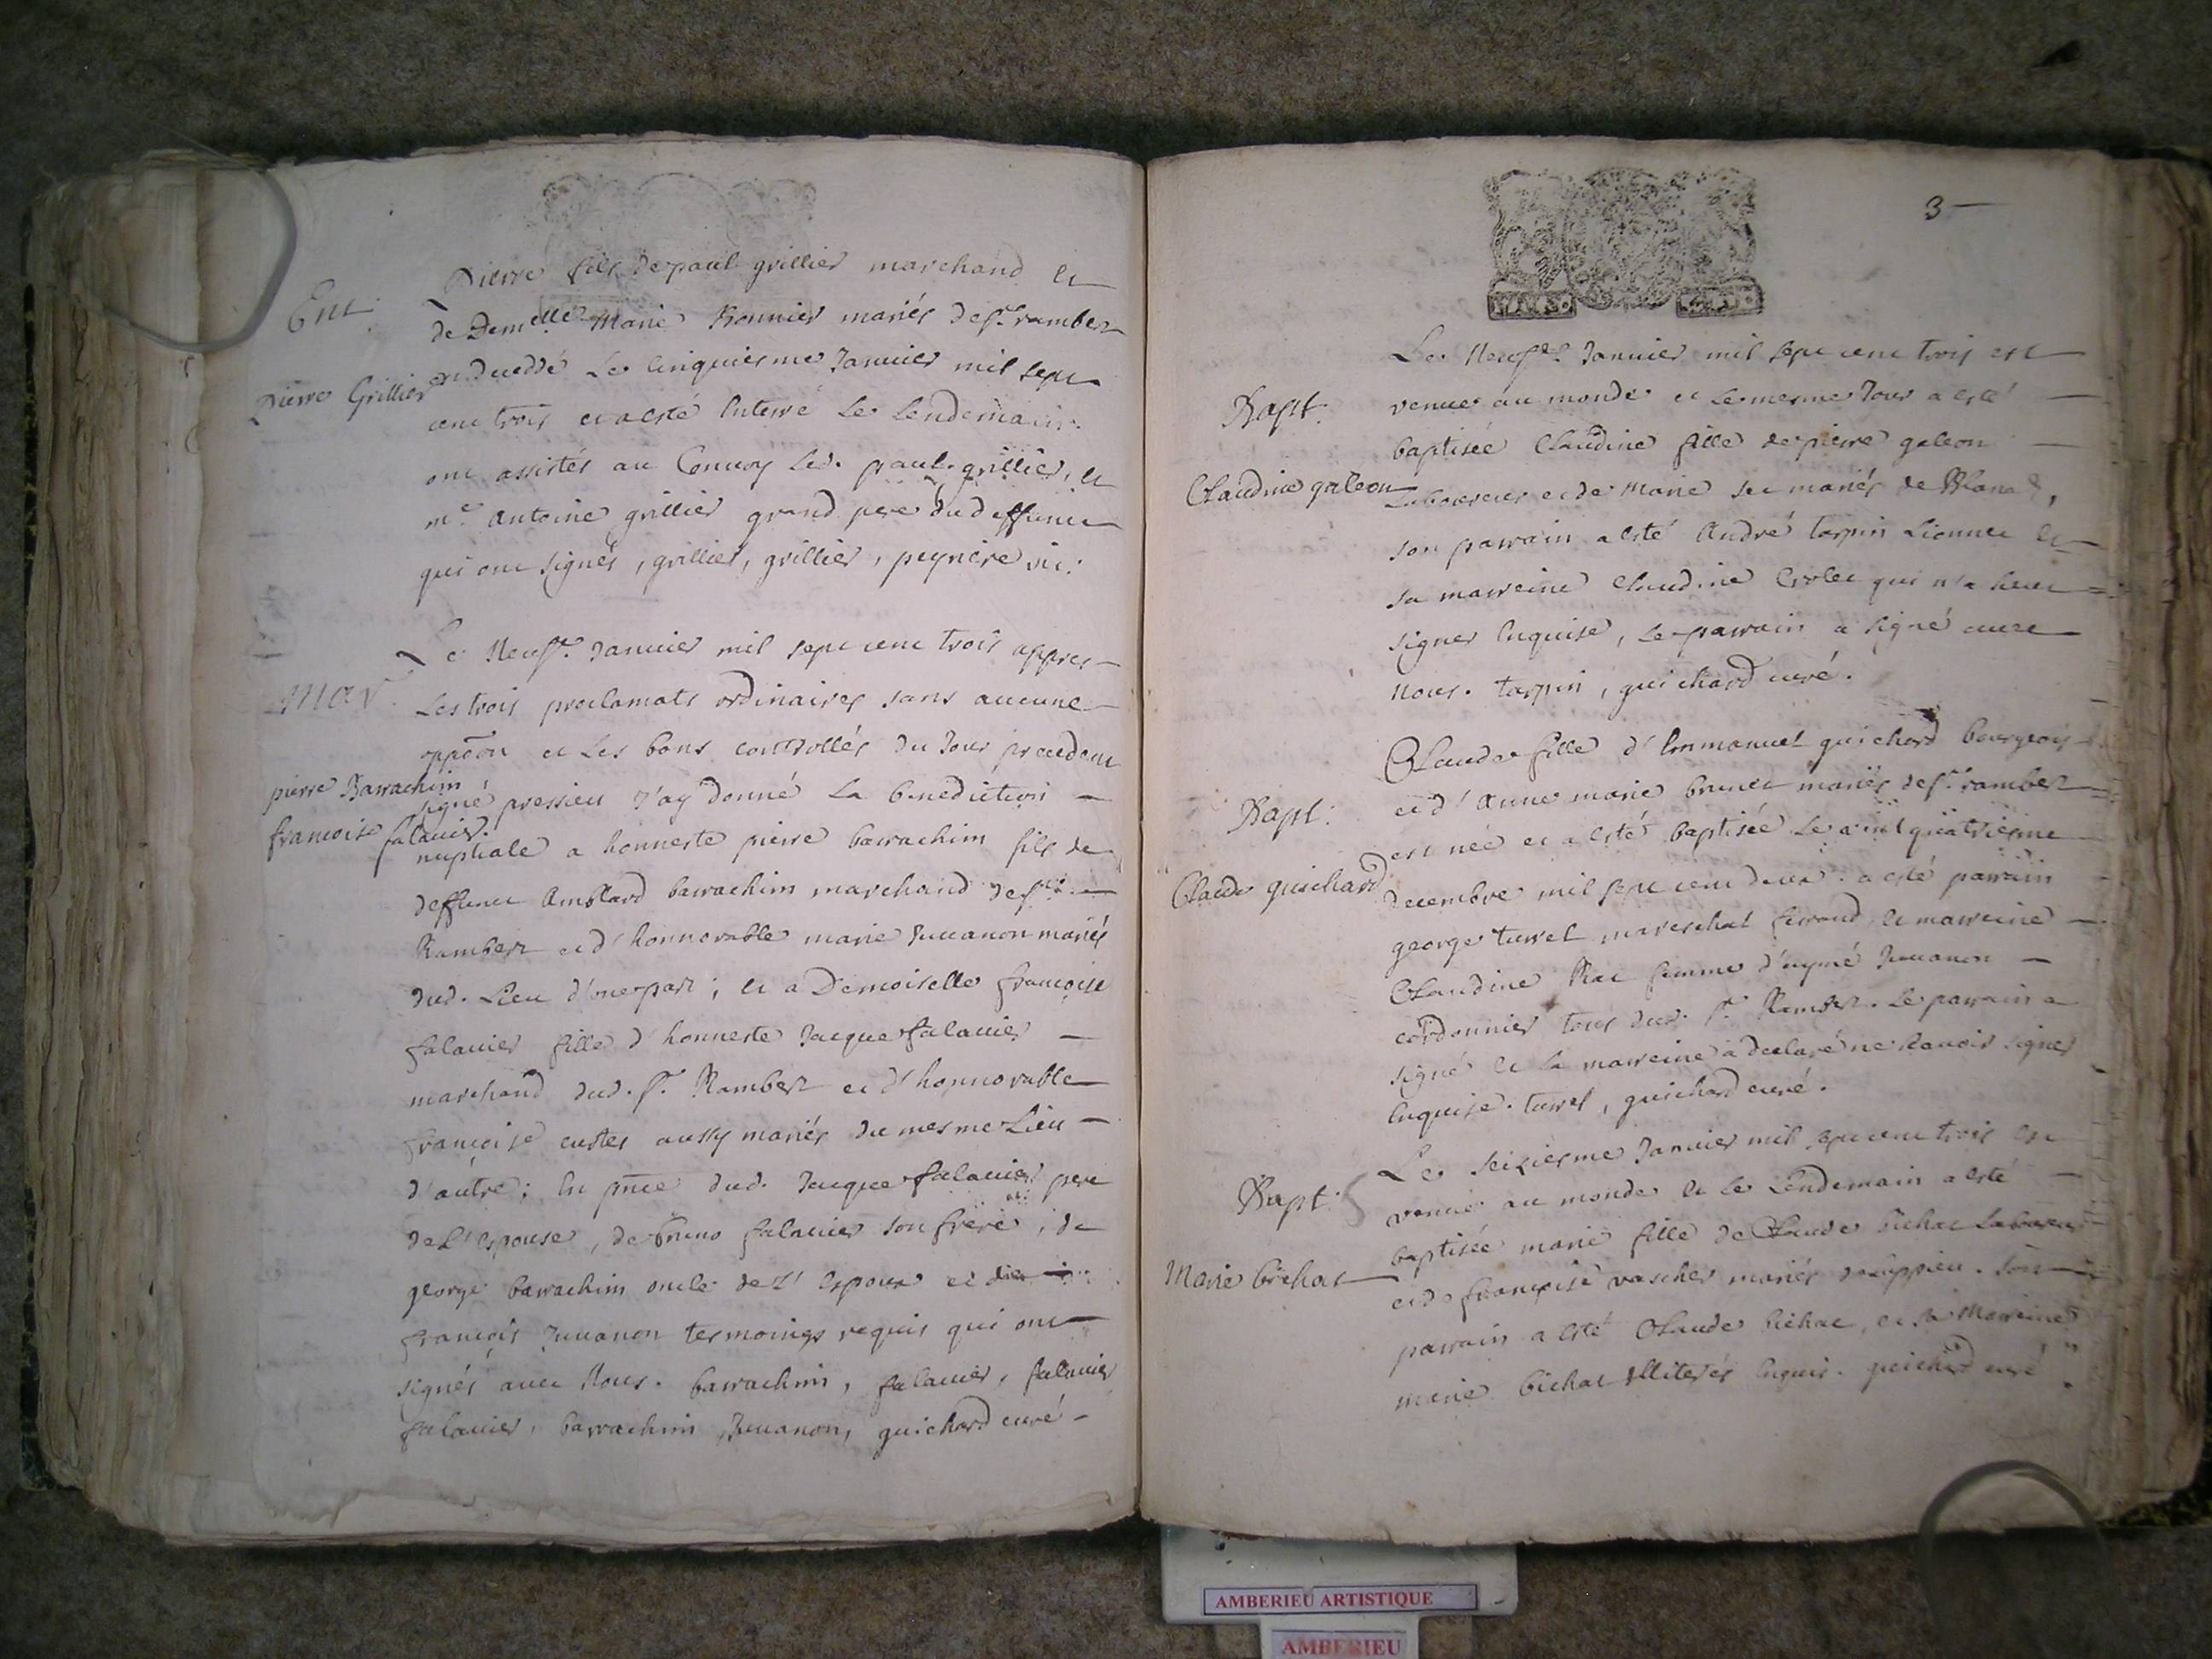 Ent.
Pierre Grillier
Pierre fils de paul grillier marchand et
de Dem.elle Marie Bonnier mariés de s.t rambert
est decedé le cinquiesme Janvier mil sept
cent trois et a esté enterré le lendemain.
ont assistés au Convoy led. paul grillier, et
m.e antoine grillier grand pere dud deffunct
qui ont signés, grillier, grillier, peyriere vic.
Mar.
pierre Barrachim
francoise falavier.
Le Neuf.e Janvier mil sept cent trois appres
les trois proclamats ordinaires sans aucune
oppõon et les bans controllés du Jour precedent
signé pressieu J'ay donné la benediction
nuptiale a honneste pierre barrachim fils de
deffunct Amblard barrachim marchand de s.t
Rambert et d'honnorable marie Juvanon mariés
dud. Lieu d'une part ; et a Demoiselle francoise
falavier fille d'honneste Jacque falavier
marchand dud. s.t Rambert et d'honnorable
françoise aussy mariés du mesme Lieu
d'autre ; en pñce dud. Jacque falavier pere
de l'espouse, de bruno falavier son frere, de
george barrachim oncle de l'espoux et
françois Juvanon tesmoings requis qui ont
signés avec Nous. barrachim, falavier, falavier
falavier, barrachim, Juvanon, guichard curé
3
Bapt.
Claudine galeon
Le Neuf.e Janvier mil sept cent trois est
venue au monde et le mesme Jour a esté
baptisée Claudine fille de pierre galeon
Laboureur et de Marie mariés de
son parrain a esté André tarpin Lionnet et
sa marreine Claudine qui n'a sceu
signer enquise, le parrain a signé avec
nous. tarpin, guichard curé.
Bapt.
Claude guichard
Claude fille d'Emmanuel guichard bourgeois
et d'Anne marie brunet mariés de s.t rambert
est née et a esté baptisée le vint quatriesme
decembre mil sept cent deux. a esté parrain
george turrel mareschal ferrand et marreine
Claudine Rac femme d'aymé Juvanon
cordonnier tous dud. s.t Rambert. Le parrain a
signé et la marreine a declaré ne scavoir signer
enquise. turrel, guichard curé.
Bapt.
Marie bichat
Le seiziesme Janvier mil sept cent trois est
venue au monde et le Lendemain a esté
baptisée marie fille de Claude bichat Laboureur
et de françoise vascher mariés son
parrain a esté Claude bichat, et sa Marreine
marie bichat illiterés enquis. guichard curé
AMBERIEU ARTISTIQUE
AMBERIEU